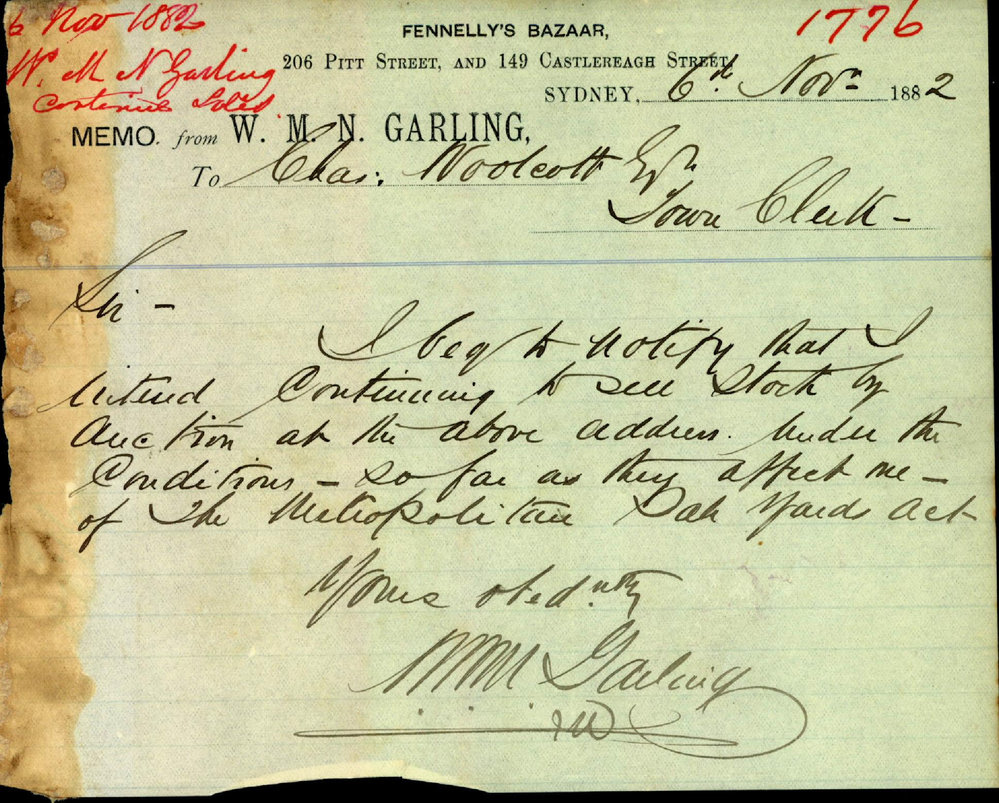 6 Nov 1882
W. M N Garling
Continue Sales
1776
FENNELLY'S BAZAAR,
206 PITT STREET, AND 149 CASTLEREAGH STREET,
SYDNEY, 6th Novr 1882
MEMO. from W. M. N. GARLING,
To Chas: Woolcott Esqr
Town Clerk –
Sir –
I beg to notify that I
intend Continuing to sell Stock by
Auction at the above address. Under the
Conditions – so far as they affect me –
of The Metropolitan Sale Yards Act
Yours obedntly
WMN Garling